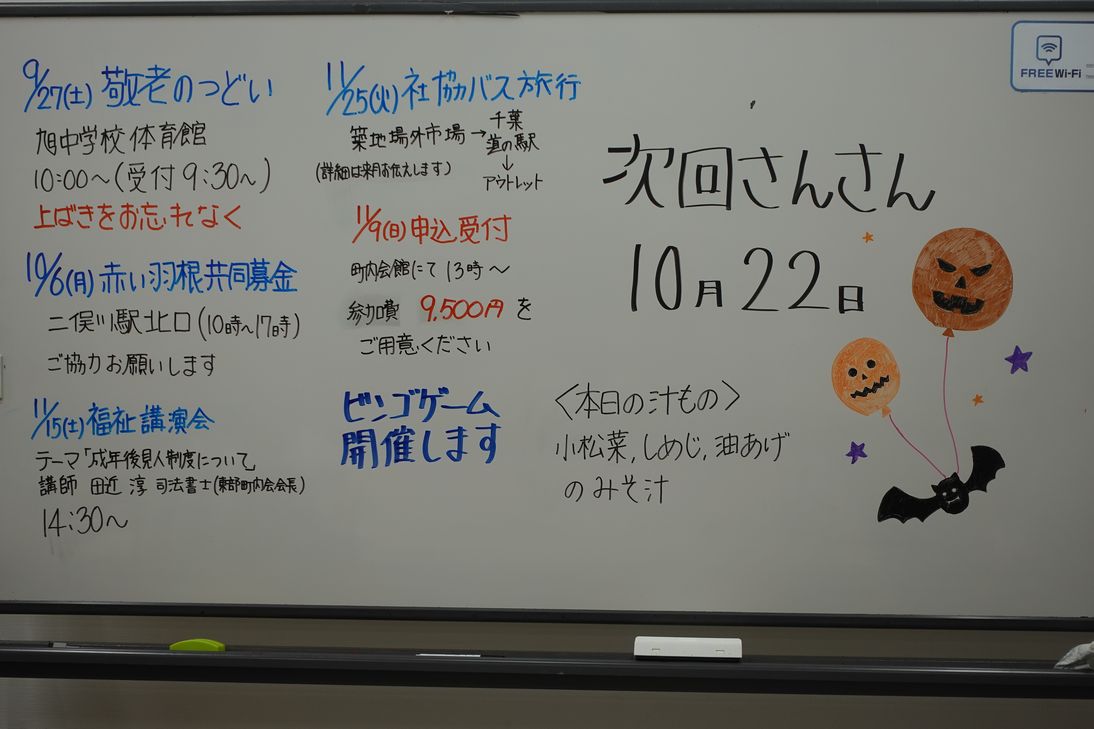 9/27(土) 敬老のつどい
旭中学校体育館
10:00〜(受付 9:30〜)
上ばきをお忘れなく
10/6(月) 赤い羽根共同募金
二俣川駅北口(10時〜17時)
ご協力お願いします
11/15(土) 福祉講演会
テーマ「成年後見人制度について」
講師 田近 淳 司法書士(東部町内会会長)
14:30〜
11/25(火) 社協バス旅行
築地場外市場→千葉道の駅
↓
(詳細は来月お伝えします)
アウトレット
11/9(日) 申込受付
町内会館にて 13時〜
参加費 9,500円を
ご用意ください
ビンゴゲーム
開催します
次回さんさん
10月22日
〈本日の汁もの〉
小松菜,しめじ,油あげ
のみそ汁
FREE Wi-Fi